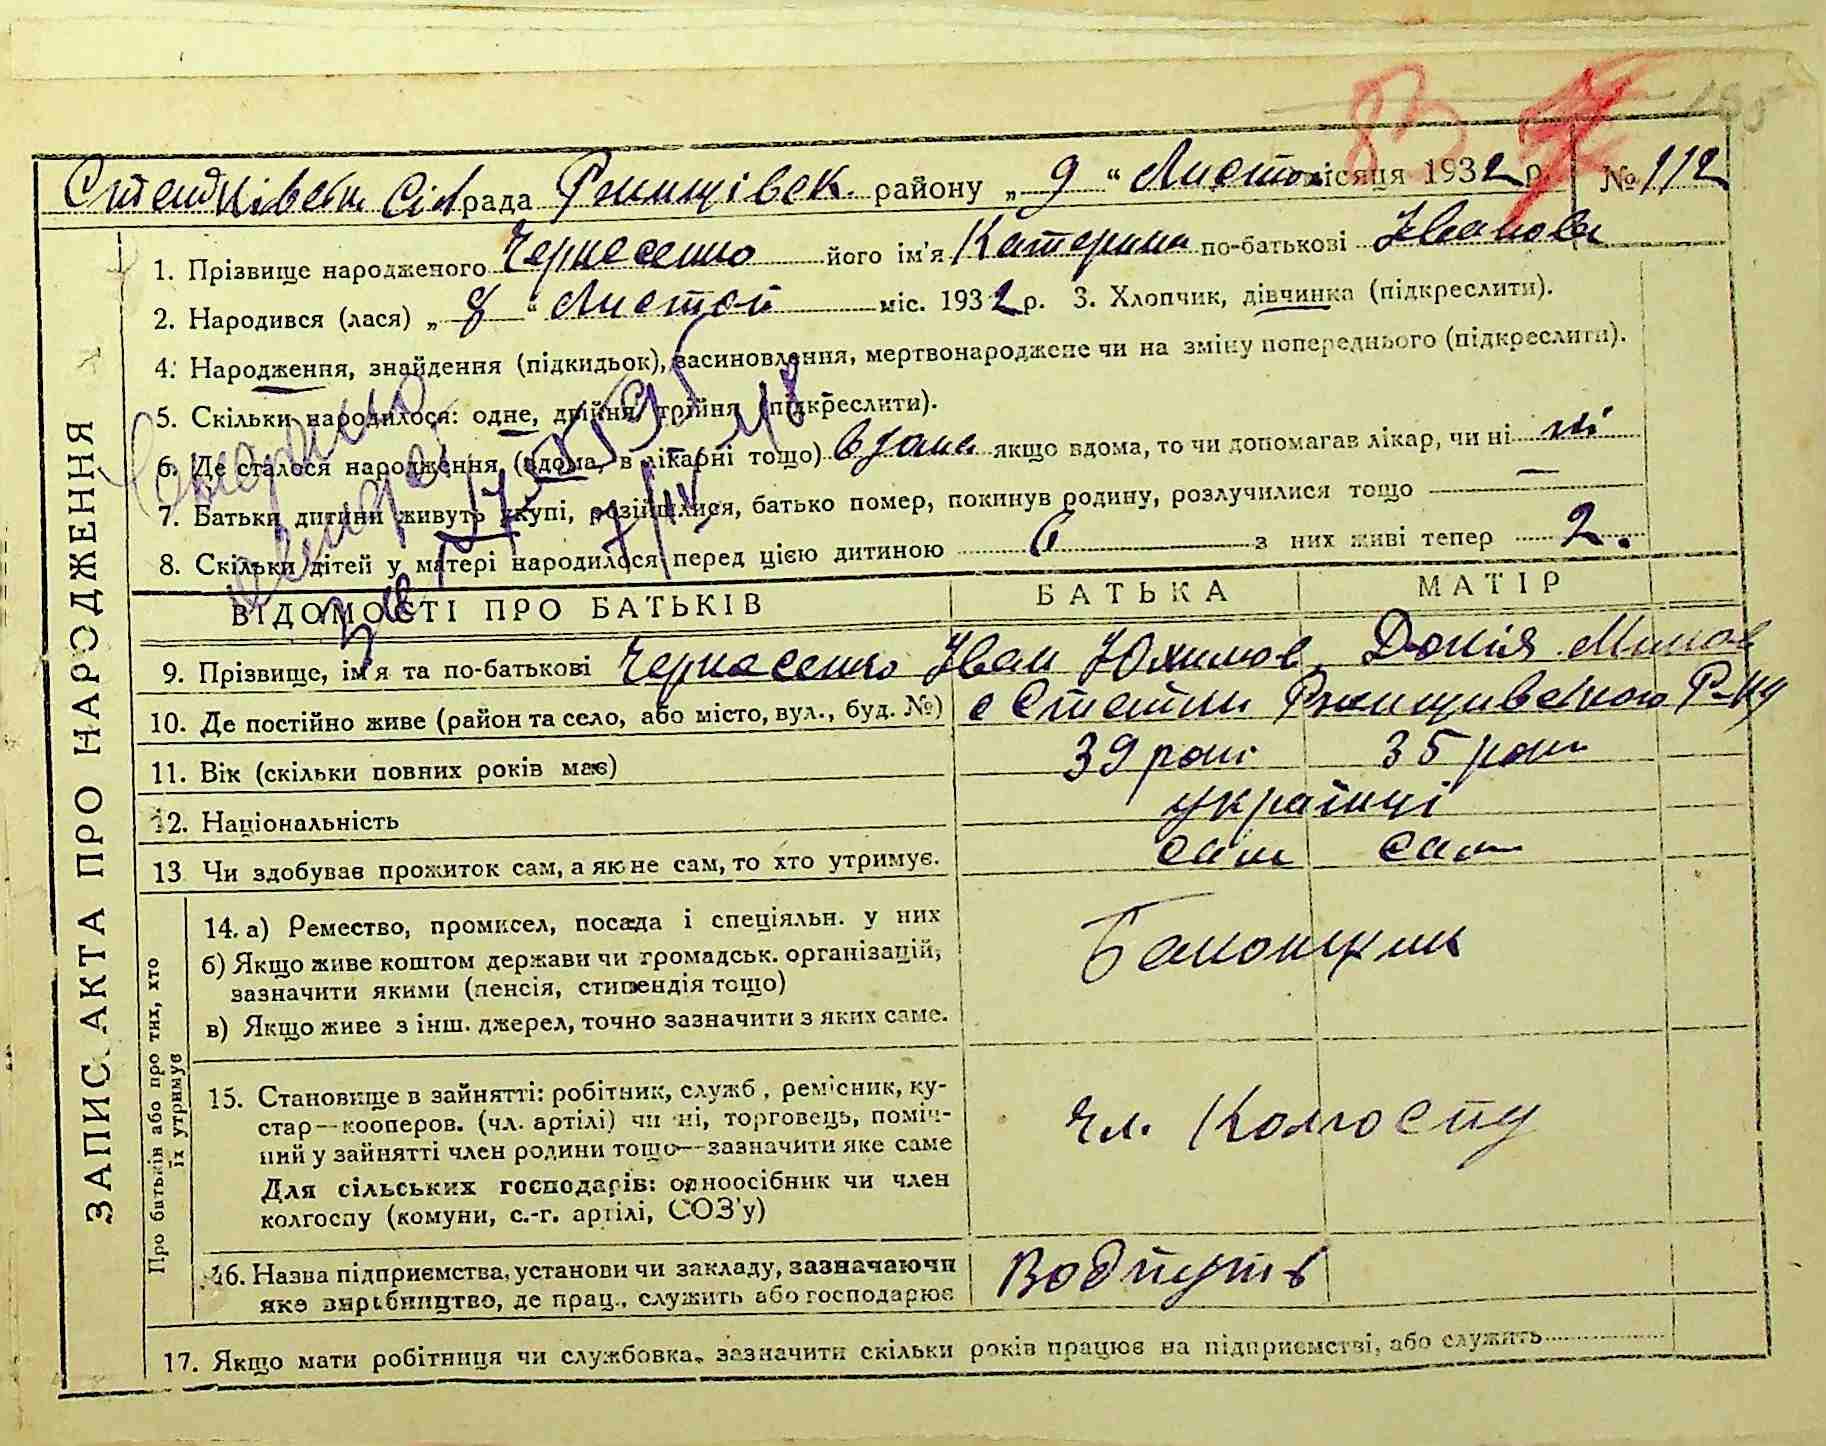 83
Сілрада Ржищівськ. району „ 9 “ Листо місяця 1932 р. № 112
ЗАПИС АКТА ПРО НАРОДЖЕННЯ
1. Прізвище народженого його ім'я Катерина по-батькові Іванова
2. Народився (лася) „ 8 “ Листоп міс. 1932 р. 3. Хлопчик, дівчинка (підкреслити).
4. Народження, знайдення (підкидьок), засиновлення, мертвонароджене чи на зміну попереднього (підкреслити).
5. Скільки народилося: одне, двійня, трійня (підкреслити).
6. Де сталося народження (вдома, в лікарні тощо) вдома якщо вдома, то чи допомагав лікар, чи ні ні
7. Батьки дитини живуть вкупі, розійшлися, батько помер, покинув родину, розлучилися тощо —
8. Скільки дітей у матері народилося перед цією дитиною 6 з них живі тепер 2.
ВІДОМОСТІ ПРО БАТЬКІВ БАТЬКА МАТІР
9. Прізвище, ім'я та по-батькові Іван Юхимов
10. Де постійно живе (район та село, або місто, вул., буд. №) с Стетки Ржищивського Р-ну
11. Вік (скільки повних років має) 39 рокі 35 рок
12. Національність українці
13 Чи здобував прожиток сам, а як не сам, то хто утримує. сам сам
Про батьків або про тих, хто їх утримує
14. а) Ремество, промисел, посада і спеціяльн. у них
б) Якщо живе коштом держави чи громадськ. організацій,
зазначити якими (пенсія, стипендія тощо)
в) Якщо живе з інш. джерел, точно зазначити з яких саме.
15. Становище в зайнятті: робітник, служб , ремісник, ку-
стар—кооперов. (чл. артілі) чи ні, торговець, поміч-
ний у зайнятті член родини тощо—зазначити яке саме
Для сільських господарів: одноосібник чи член
колгоспу (комуни, с.-г. артілі, СОЗ'у)
чл. Колгоспу
16. Назва підприємства, установи чи закладу, зазначаючи
яке виробництво, де прац., служить або господарює
Водпуть
17. Якщо мати робітниця чи службовка, зазначити скільки років працює на підприємстві, або служить